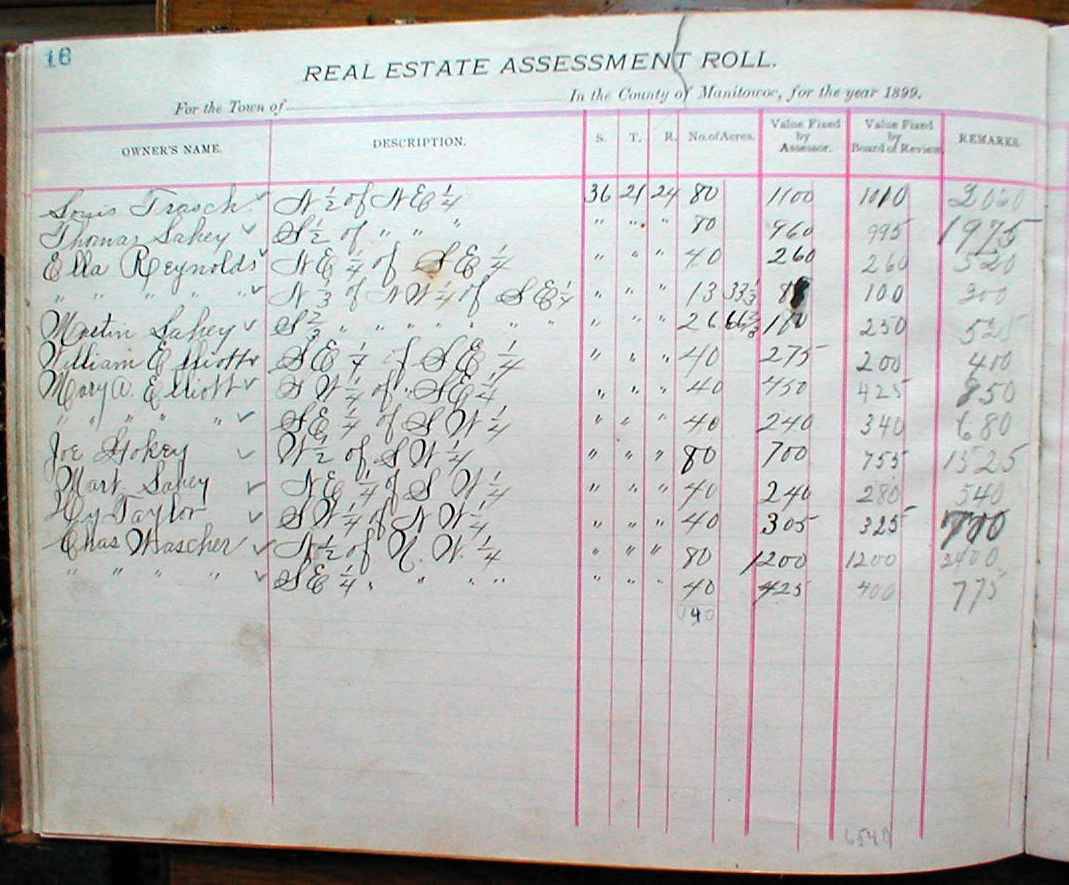 16
REAL ESTATE ASSESSMENT ROLL.
For the Town of In the County of Manitowoc, for the year 1899.
OWNER'S NAME. DESCRIPTION. S. T. R. No. of Acres. Value Fixed by Assessor. Value Fixed by Board of Review. REMARKS.
Louis Trasck N ½ of N E ¼ 36 21 24 80 1100 1010 2060
Thomas Lahey S ½ of " " " " " " 80 960 995 1975
Ella Reynolds N E ¼ of S E ¼ " " " 40 260 260 520
" " " " " N ⅓ of N W ¼ of S E ¼ " " " 13 33⅓ 100 200
Martin Lahey S ⅔ " " " " " " " " " " 26 66⅔ 250 525
William Elliott S E ¼ of S E ¼ " " " 40 275 200 400
Mary A. Elliott S W ¼ of S E ¼ " " " 40 450 425 850
" " " " S E ¼ of S W ¼ " " " 40 240 340 680
Joe Gokey W ½ of S W ¼ " " " 80 700 755 1525
Mart Lahey N E ¼ of S W ¼ " " " 40 240 280 540
Hy Taylor S W ¼ of N W ¼ " " " 40 305 325 700
Chas Wascher N ½ of N. W. ¼ " " " 80 1200 1200 2400
" " " " S E ¼ " " " " " " " 40 425 400 775
6540